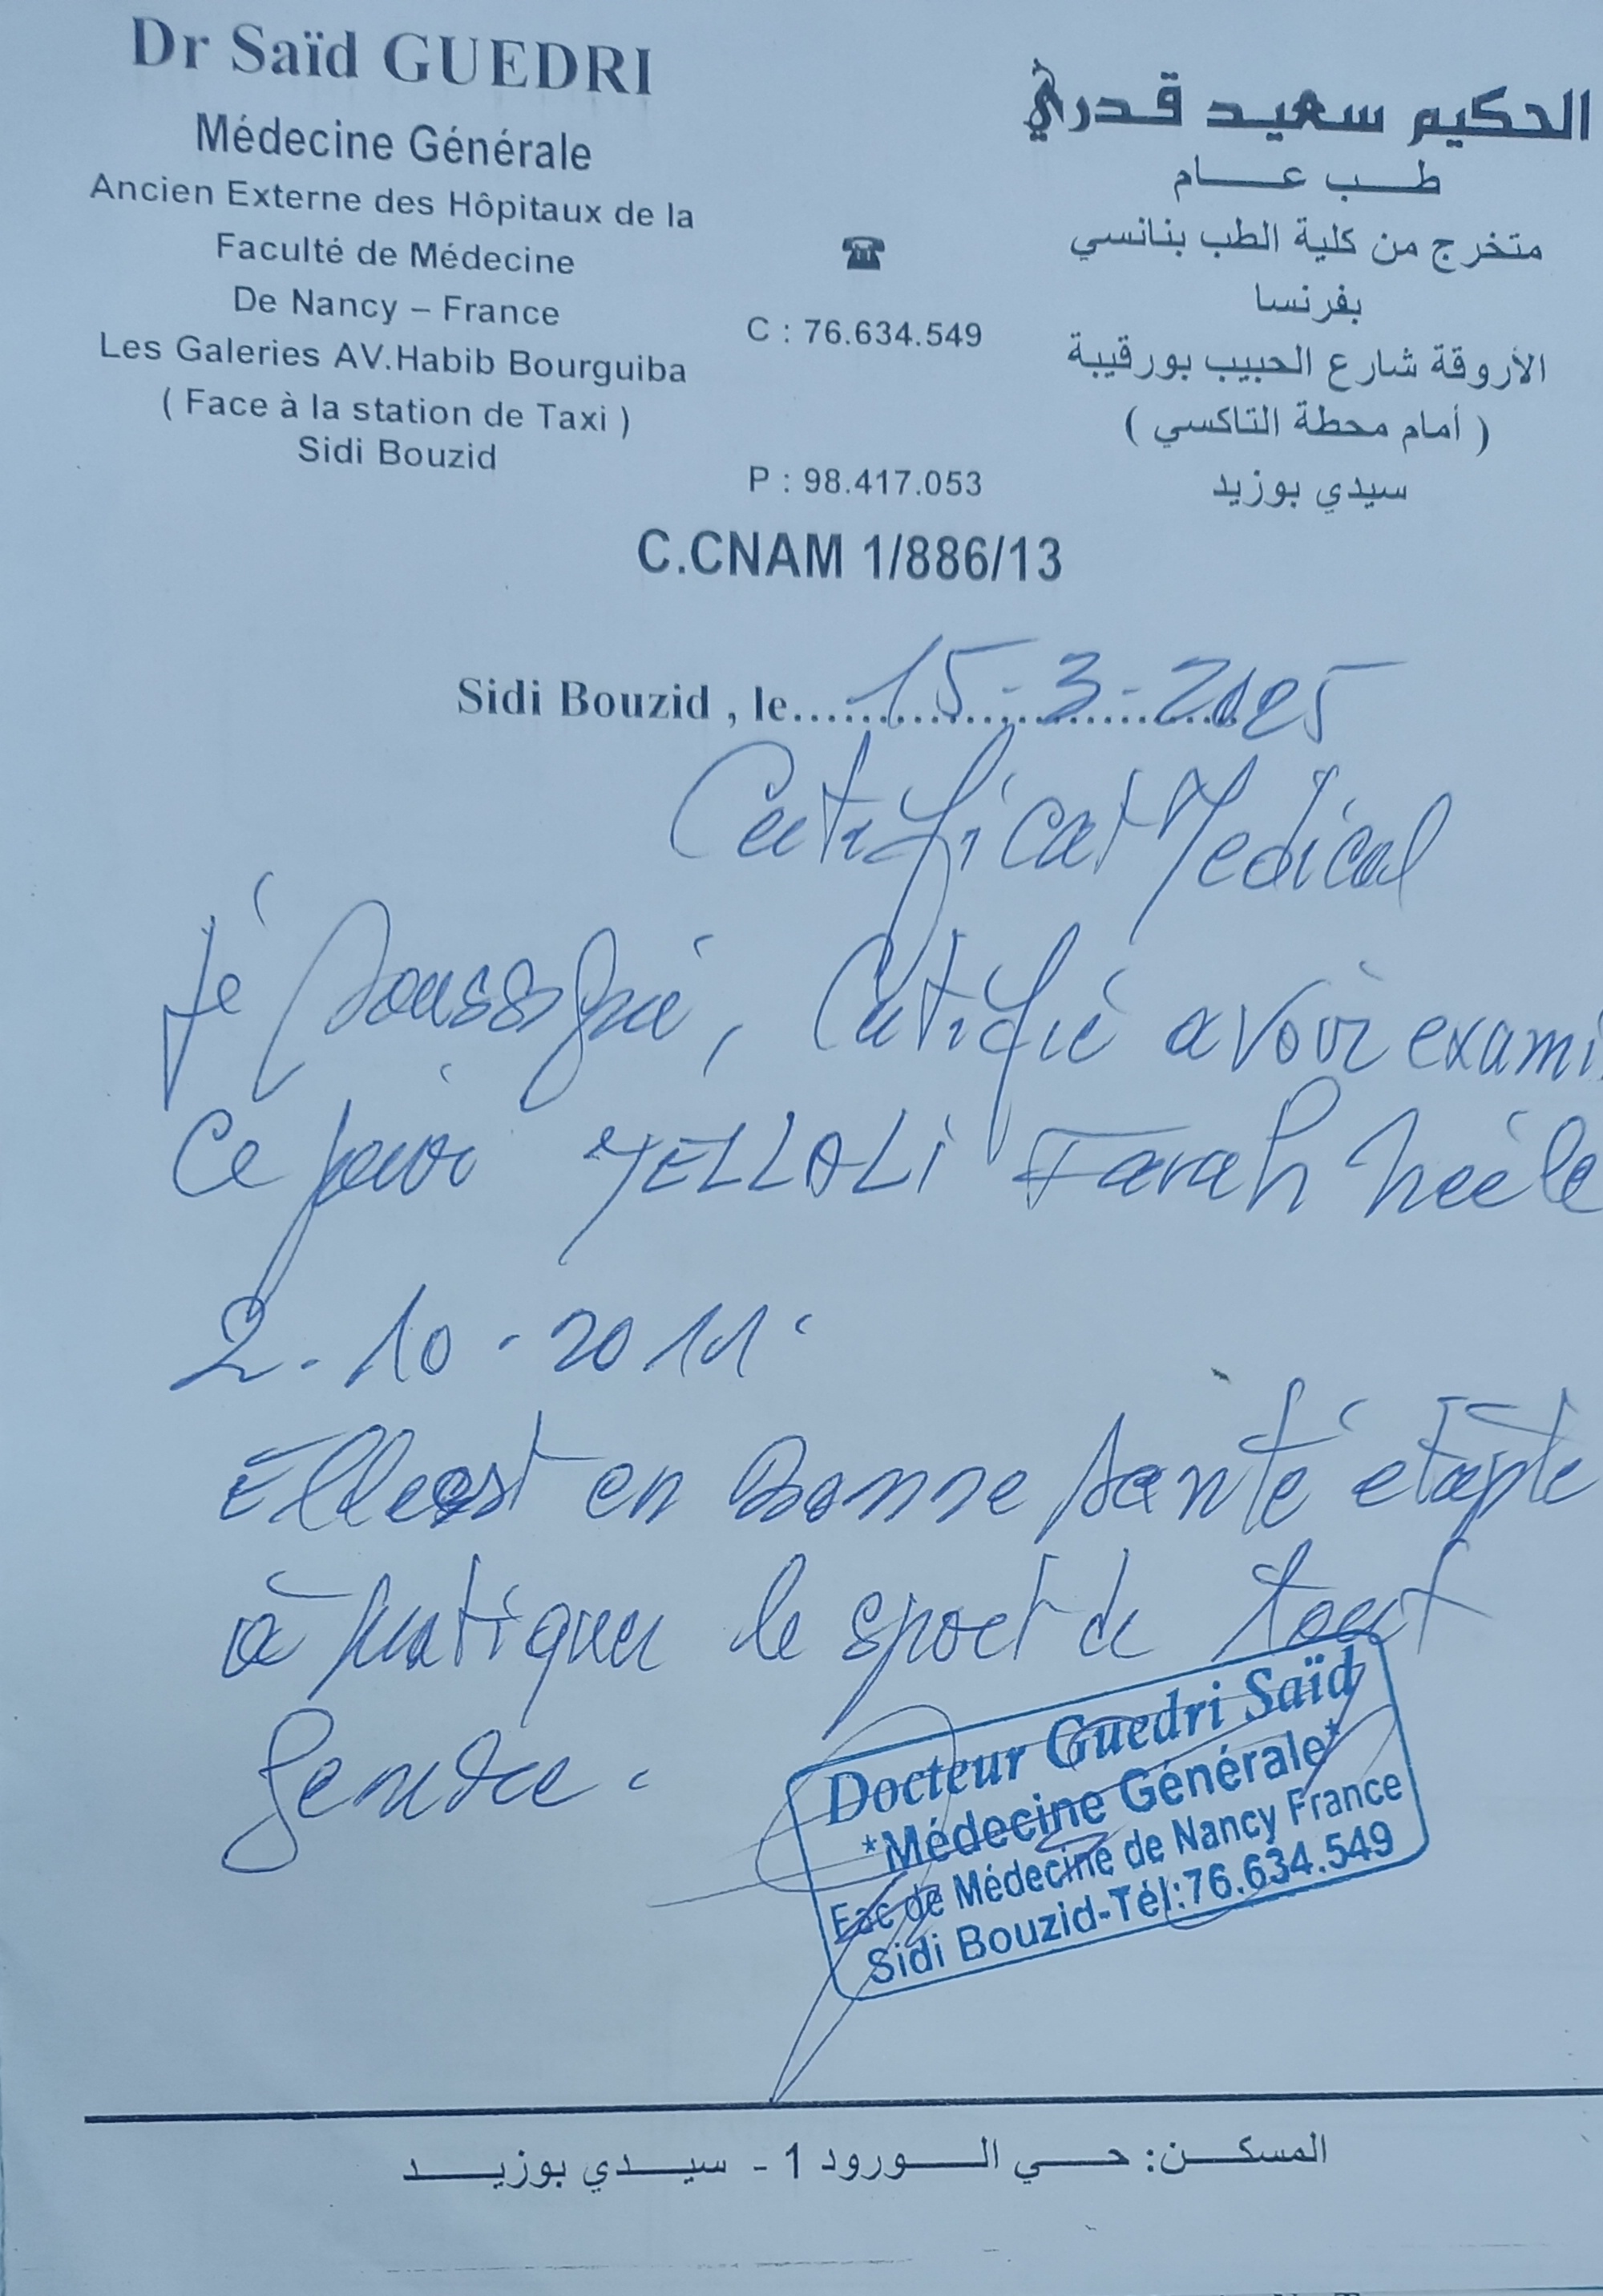 Dr Saïd GUEDRI
Médecine Générale
Ancien Externe des Hôpitaux de la
Faculté de Médecine
De Nancy – France
Les Galeries AV.Habib Bourguiba
( Face à la station de Taxi )
Sidi Bouzid
الحكيم سعيد قدري
طب عام
متخرج من كلية الطب بنانسي
بفرنسا
الأروقة شارع الحبيب بورقيبة
( أمام محطة التاكسي )
سيدي بوزيد
☎
C : 76.634.549
P : 98.417.053
C.CNAM 1/886/13
Sidi Bouzid , le 15-3-2025
Certificat Medical
Je soussigné, Certifie avoir exami
Ce jour JELLALI Farah née le
2.10.2011.
Elle est en Bonne santé et apte
à pratiquer le sport de tout
Genre.
Docteur Guedri Saïd
*Médecine Générale*
Fac de Médecine de Nancy France
Sidi Bouzid-Tél:76.634.549
المسكن: حي الورود 1 - سيدي بوزيد